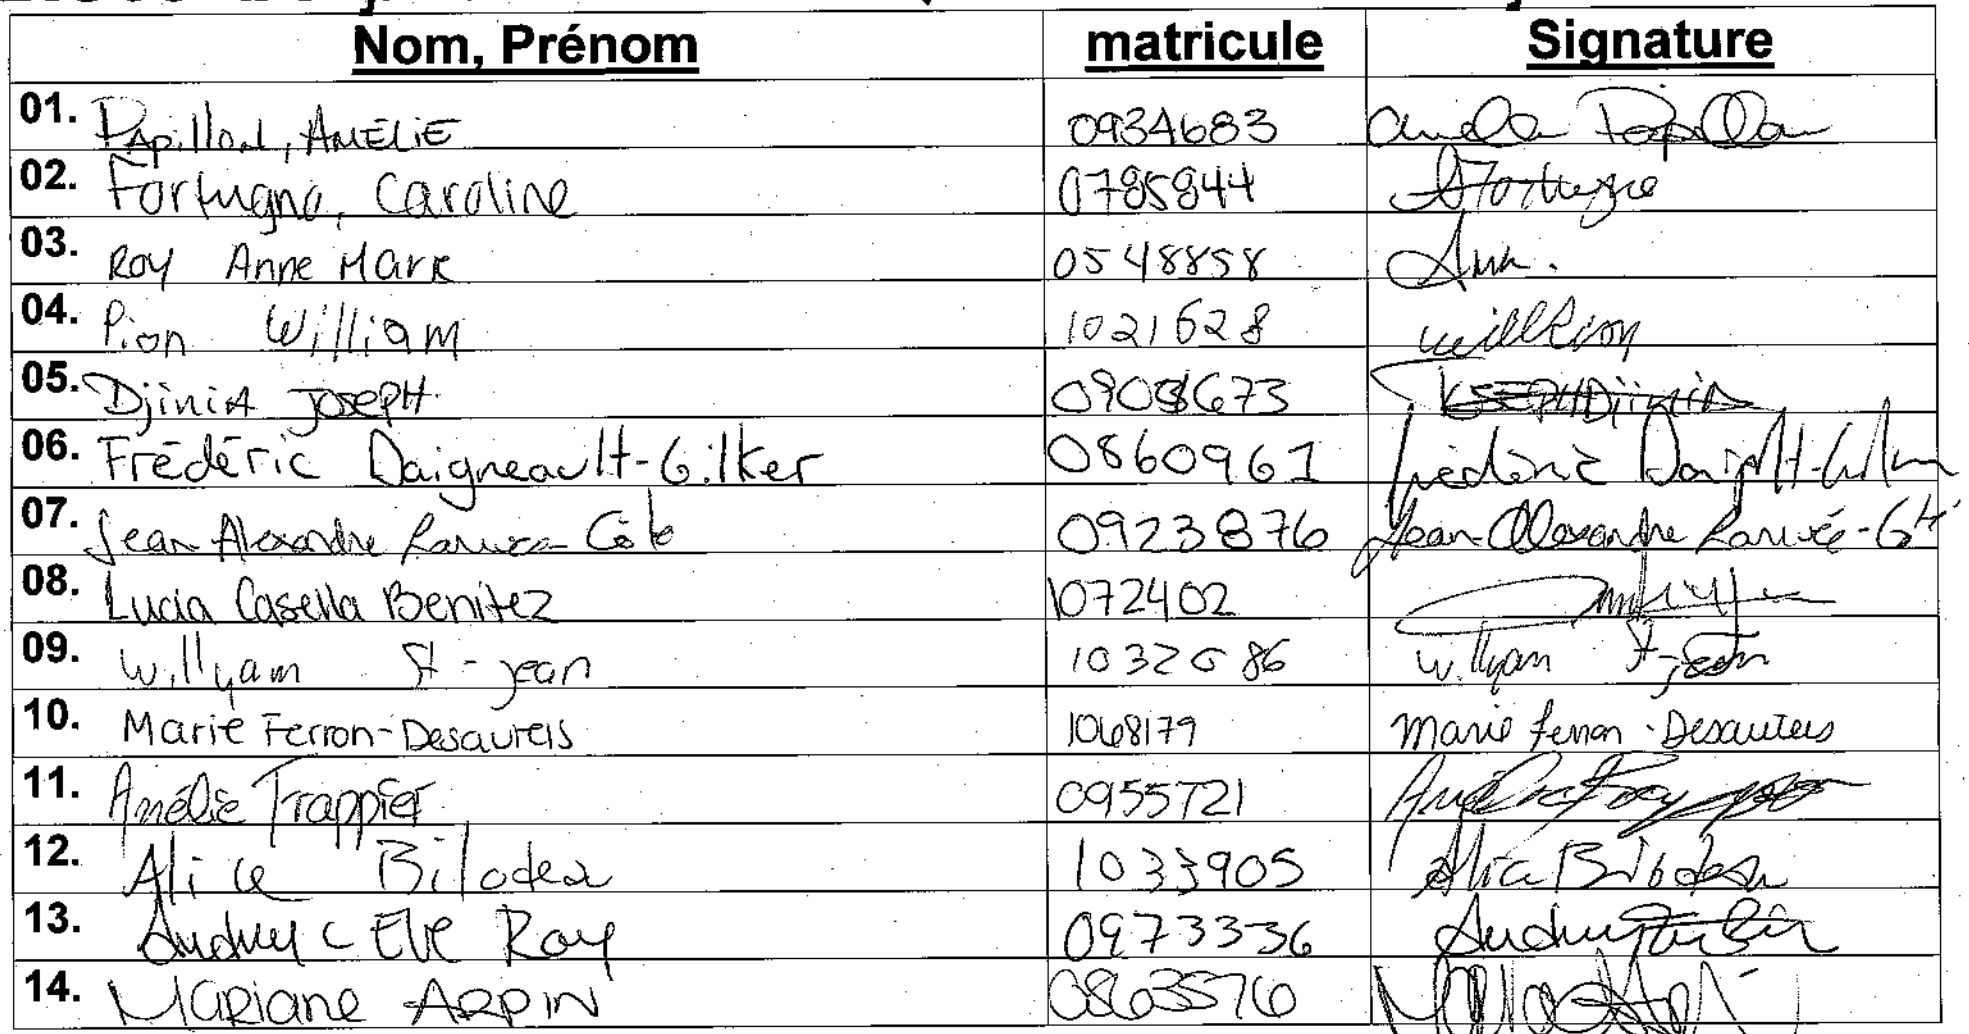 Nom, Prénom matricule Signature
01. Papillon, AMÉLIE 0934683 Amélie Papillon
02. Fortugno, Caroline 0785844 Fortugno
03. Roy Anne Mark 0548858
04. Pion William 1021628 will Pion
05. Djinia JOSEPH 0908673 JOSEPH Djinia
06. Frédéric Daigneault-Gilker 0860961 Frédéric
07. Jean Alexandre Côté 09238876 Jean-Alexandre
08. Lucia Casella Benitez 1072402
09. Willyam St-jean 1032686 Willyam St-jean
10. Marie Ferron-Desautels 1068179 Marie Ferron-Desautels
11. Amélie Trappier 0955721 Amélie Trappier
12. Alice Bilodea 1033905 Alice Bilodeau
13. Eve Roy 0973336
14. Mariane ARPIN 0863576